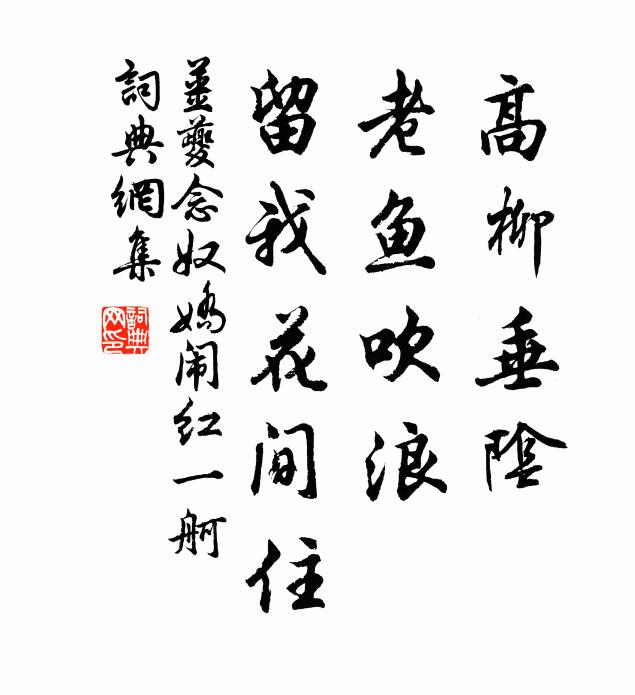 高柳垂陰
老鱼吹浪
留我花间住
薑夔念奴嬌闹红一舸
詞典網集
詞典
网印